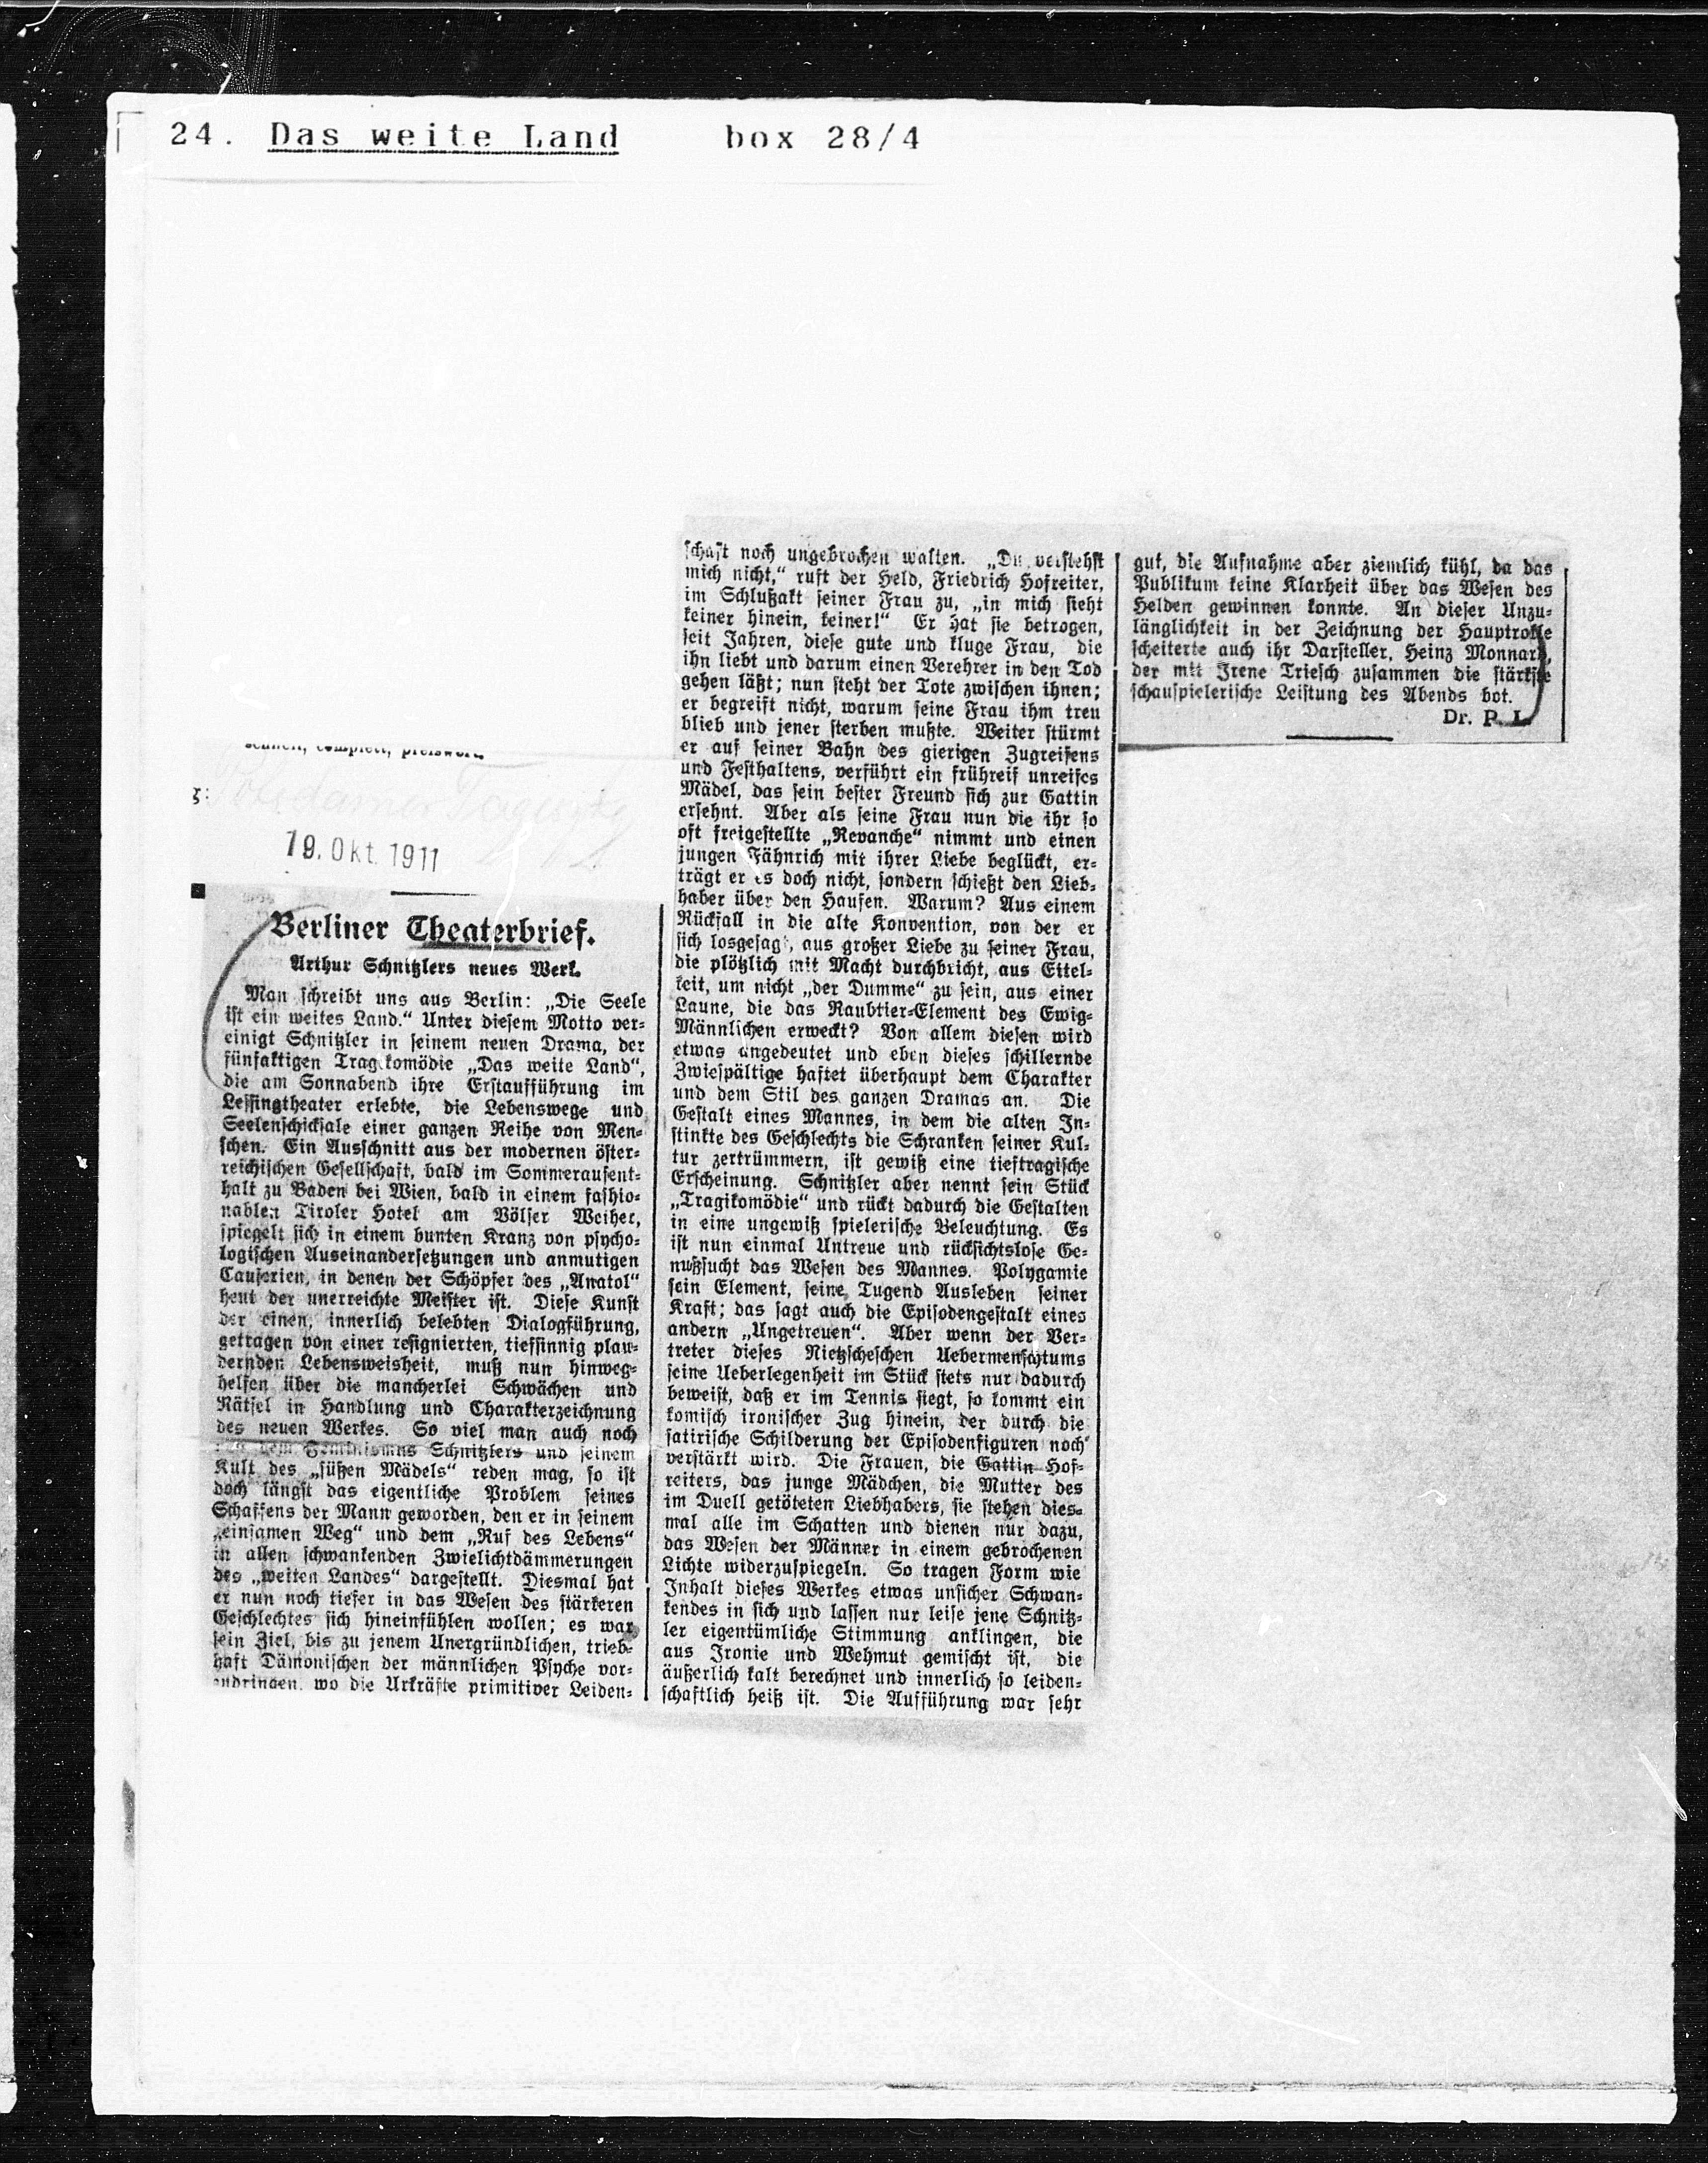 24. Das weite Land box 28/4
schnell, complett, preiswert.
19. Okt. 1911
Berliner Theaterbrief.
Arthur Schnitzlers neues Werk.
Man schreibt uns aus Berlin: „Die Seele
ist ein weites Land.“ Unter diesem Motto ver-
einigt Schnitzler in seinem neuen Drama, der
fünfaktigen Tragikomödie „Das weite Land“,
die am Sonnabend ihre Erstaufführung im
Lessingtheater erlebte, die Lebenswege und
Seelenschicksale einer ganzen Reihe von Men-
schen. Ein Ausschnitt aus der modernen öster-
reichischen Gesellschaft, bald im Sommeraufent-
halt zu Baden bei Wien, bald in einem fashio-
nablen Tiroler Hotel am Völser Weiher,
spiegelt sich in einem bunten Kranz von psycho-
logischen Auseinandersetzungen und anmutigen
Causerien, in denen der Schöpfer des „Anatol“
heut der unerreichte Meister ist. Diese Kunst
der einen, innerlich belebten Dialogführung,
getragen von einer resignierten, tiefsinnig plau-
dernden Lebensweisheit, muß nun hinweg-
helfen über die mancherlei Schwächen und
Rätsel in Handlung und Charakterzeichnung
des neuen Werkes. So viel man auch noch
dem Feminismus Schnitzlers und seinem
Kult des „süßen Mädels“ reden mag, so ist
doch längst das eigentliche Problem seines
Schaffens der Mann geworden, den er in seinem
„einsamen Weg“ und dem „Ruf des Lebens“
in allen schwankenden Zwielichtdämmerungen
des „weiten Landes“ dargestellt. Diesmal hat
er nun noch tiefer in das Wesen des stärkeren
Geschlechtes sich hineinfühlen wollen; es war
sein Ziel, bis zu jenem Unergründlichen, trieb-
haft Dämonischen der männlichen Psyche vor-
zudringen, wo die Urkräfte primitiver Leiden-
schaft noch ungebrochen walten. „Du verstehst
mich nicht,“ ruft der Held, Friedrich Hofreiter,
im Schlußakt seiner Frau zu, „in mich sieht
keiner hinein, keiner!“ Er hat sie betrogen,
seit Jahren, diese gute und kluge Frau, die
ihn liebt und darum einen Verehrer in den Tod
gehen läßt; nun steht der Tote zwischen ihnen;
er begreift nicht, warum seine Frau ihm treu
blieb und jener sterben mußte. Weiter stürmt
er auf seiner Bahn des gierigen Zugreifens
und Festhaltens, verführt ein frühreif unreifes
Mädel, das sein bester Freund sich zur Gattin
ersehnt. Aber als seine Frau nun die ihr so
oft freigestellte „Revanche“ nimmt und einen
jungen Fähnrich mit ihrer Liebe beglückt, er-
trägt er es doch nicht, sondern schießt den Lieb-
haber über den Haufen. Warum? Aus einem
Rückfall in die alte Konvention, von der er
sich losgesagt, aus großer Liebe zu seiner Frau,
die plötzlich mit Macht durchbricht, aus Eitel-
keit, um nicht „der Dumme“ zu sein, aus einer
Laune, die das Raubtier-Element des Ewig-
Männlichen erweckt? Von allem diesen wird
etwas angedeutet und eben dieses schillernde
Zwiespältige haftet überhaupt dem Charakter
und dem Stil des ganzen Dramas an. Die
Gestalt eines Mannes, in dem die alten In-
stinkte des Geschlechts die Schranken seiner Kul-
tur zertrümmern, ist gewiß eine tieftragische
Erscheinung. Schnitzler aber nennt sein Stück
„Tragikomödie“ und rückt dadurch die Gestalten
in eine ungewiß spielerische Beleuchtung. Es
ist nun einmal Untreue und rücksichtslose Ge-
nußsucht das Wesen des Mannes. Polygamie
sein Element, seine Tugend Ausleben seiner
Kraft; das sagt auch die Episodengestalt eines
andern „Ungetreuen“. Aber wenn der Ver-
treter dieses Nietzscheschen Uebermenschtums
seine Ueberlegenheit im Stück stets nur dadurch
beweist, daß er im Tennis siegt, so kommt ein
komisch ironischer Zug hinein, der durch die
satirische Schilderung der Episodenfiguren noch
verstärkt wird. Die Frauen, die Gattin Hof-
reiters, das junge Mädchen, die Mutter des
im Duell getöteten Liebhabers, sie stehen dies-
mal alle im Schatten und dienen nur dazu,
das Wesen der Männer in einem gebrochenen
Lichte widerzuspiegeln. So tragen Form wie
Inhalt dieses Werkes etwas unsicher Schwan-
kendes in sich und lassen nur leise jene Schnitz-
ler eigentümliche Stimmung anklingen, die
aus Ironie und Wehmut gemischt ist, die
äußerlich kalt berechnet und innerlich so leiden-
schaftlich heiß ist. Die Aufführung war sehr
gut, die Aufnahme aber ziemlich kühl, da das
Publikum keine Klarheit über das Wesen des
Helden gewinnen konnte. An dieser Unzu-
länglichkeit in der Zeichnung der Hauptrolle
scheiterte auch ihr Darsteller, Heinz Monnard,
der mit Irene Triesch zusammen die stärkste
schauspielerische Leistung des Abends bot.
Dr. P. L.